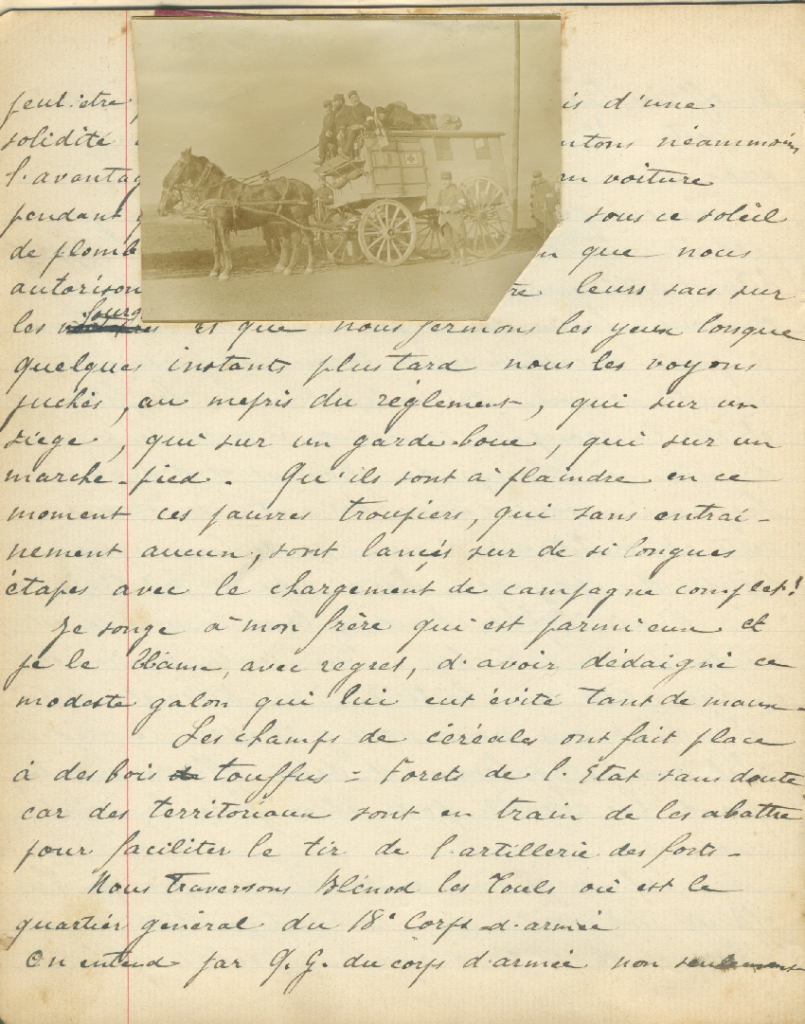 peut-être is d'une
solidité ntons néammoins
l'avantag en voiture
pendant sous ce soleil
de plomb que nous
autorison re leurs sacs sur
les fourg et que nous fermons les yeux lorsque
quelques instants plus tard nous les voyons
juchés, au mepris du réglement, qui sur un
siège, qui sur un garde-boue, qui sur un
marche-pied. Qu'ils sont à plaindre en ce
moment ces pauvres troupiers, qui sans entraî-
nement aucun, sont lancés sur de si longues
étapes avec le chargement de campagne complet!
Je songe à mon frère qui est parmi eux et
je le blâme, avec regret, d'avoir dédaigné ce
modeste galon qui lui eut évité tant de maux.
Les champs de céréales ont fait place
à des bois touffus = Forets de l'Etat sans doute
car des territoriaux sont en train de les abattre
pour faciliter le tir de l'artillerie des forts -
Nous traversons Blénod les Touls où est le
quartier général du 18e Corps d'armée
On entend par Q.G. du corps d'armée non seulement